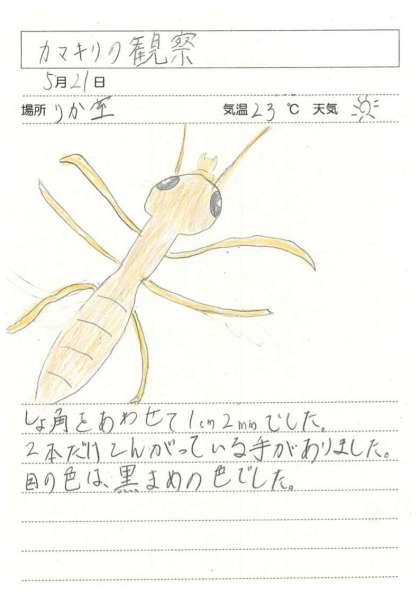 カマキリの観察
5月21日
場所 りか室 気温 23℃ 天気
しょ角をあわせて1cm2mmでした。
2本だけとんがっている手がありました。
目の色は、黒まめの色でした。